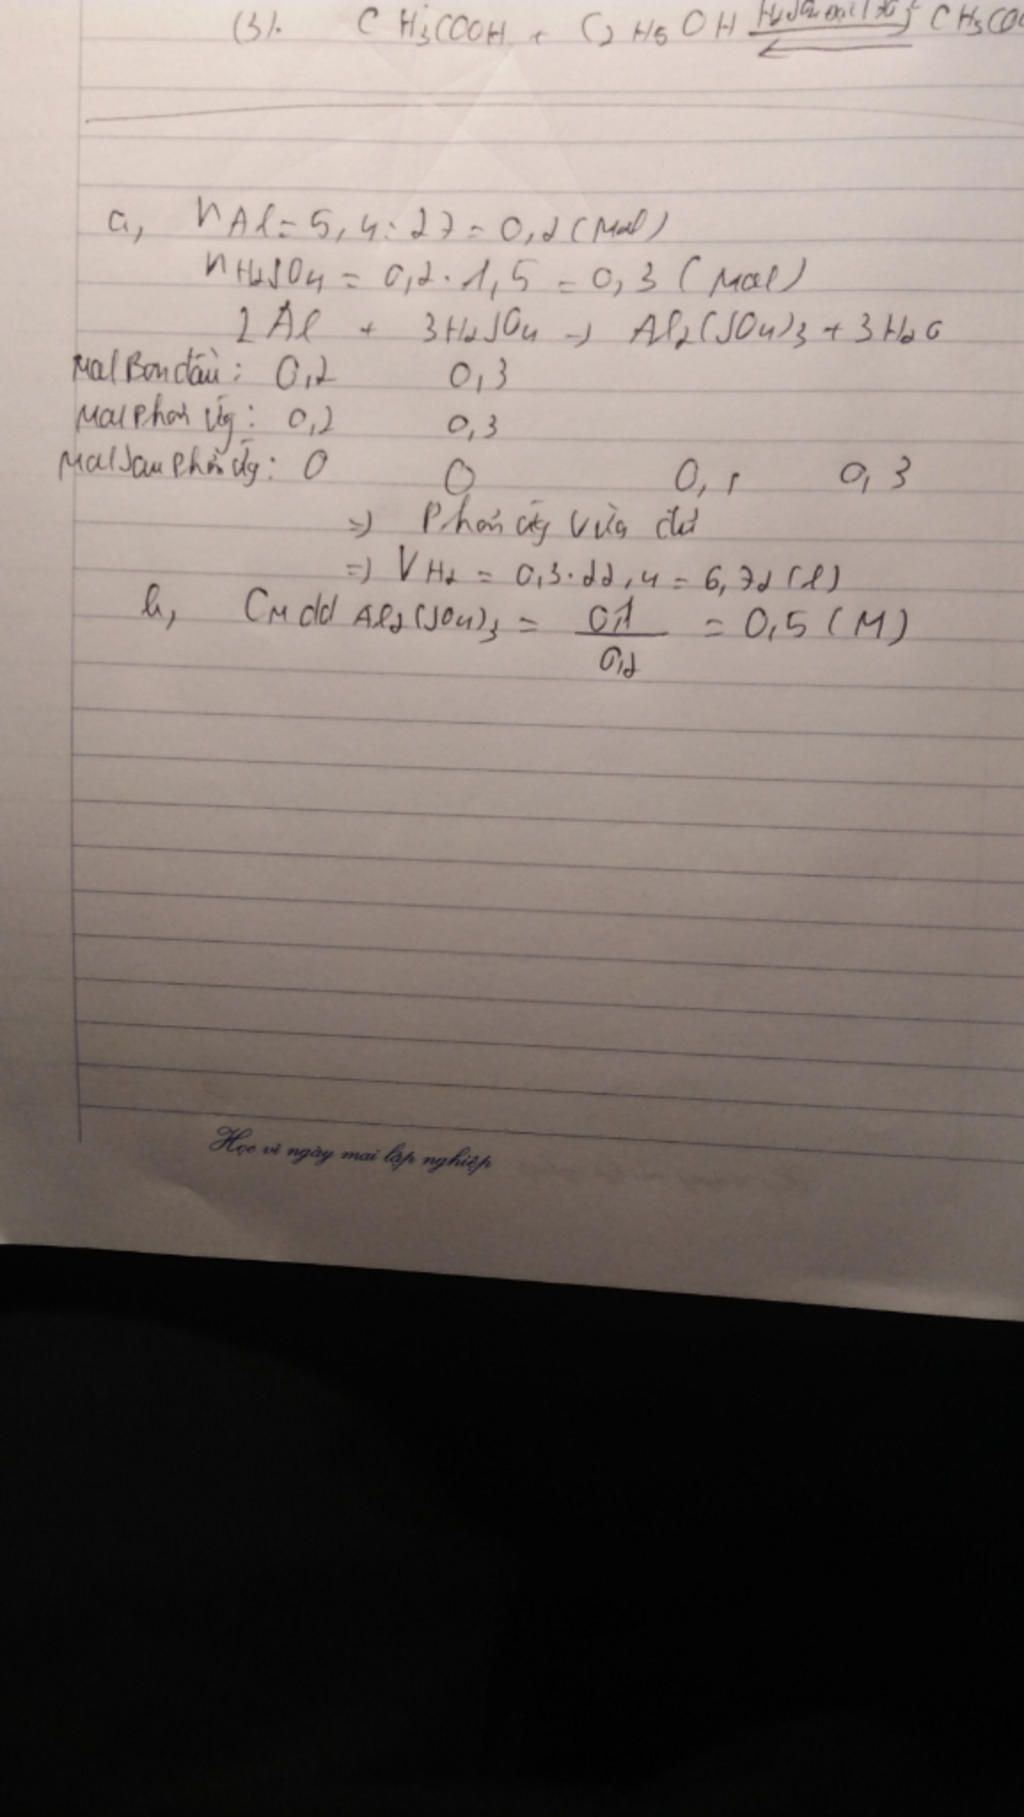 (3). CH3COOH + C2H5OH H2SO4 đặc(to) CH3COO
a, nAl = 5,4 : 27 = 0,2 (mol)
nH2SO4 = 0,2 . 1,5 = 0,3 (mol)
2Al + 3H2SO4 → Al2(SO4)3 + 3H2O
Mol Ban đầu : 0,2 0,3
Mol Phản ứng : 0,2 0,3
Mol sau Phản ứng : 0 0 0,1 0,3
=> Phản ứng vừa đủ
=> VH2 = 0,3 . 22,4 = 6,72 (l)
b, CM dd Al2(SO4)3 = 0,1 / 0,2 = 0,5 (M)
Học vì ngày mai lập nghiệp